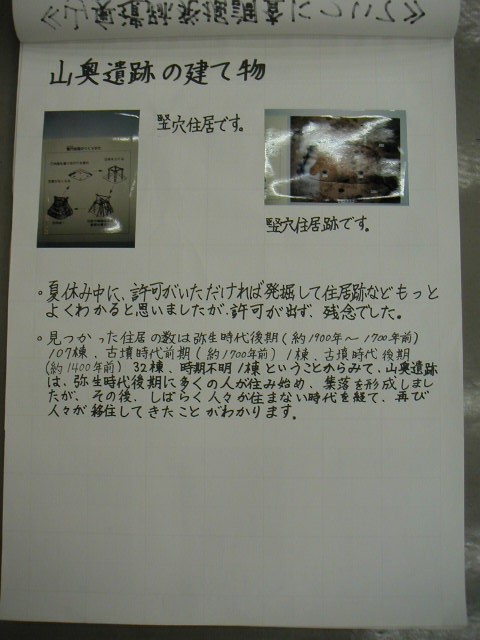 山奥遺跡の建て物
竪穴住居です。
竪穴住居跡です。
。夏休み中に、許可がいただければ発掘して住居跡などもっと
よくわかると思いましたが、許可が出ず、残念でした。
。見つかった住居の数は弥生時代後期(約1900年〜1700年前)
107棟、古墳時代前期(約1700年前)1棟、古墳時代後期
(約1400年前)32棟、時期不明1棟ということからみて、山奥遺跡
は、弥生時代後期に多くの人が住み始め、集落を形成しまし
たが、その後、しばらく人々が住まない時代を経て、再び
人々が移住してきたことがわかります。